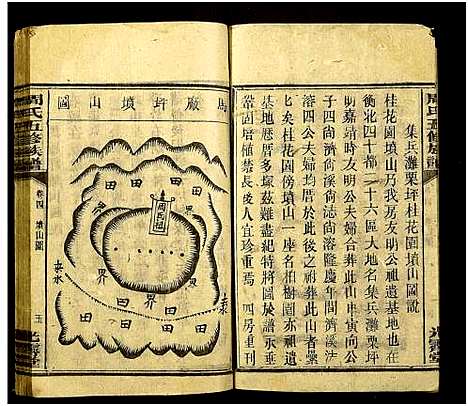 周氏五修族譜
集兵灘栗坪桂花園墳山圖說
桂花園墳山乃我房友明公祖遺基地也在
衡北四十都二十六區大地名集兵灘栗坪
明嘉靖時友明公夫婦合葬此山申寅向公
子四尚濟尚溪尚誌尚溶隆慶年間濟溪
溶四公夫婦均居於此後之祔葬此山者纍
七矣桂花園傍墳山一座名柏樹園亦祖遺
基地曆葬多塚茲難盡紀特將圖於譜
欲清層蒂固營長後人宜珍重焉 四房重刊
馬廠坪墳山圖
周氏祖
田
田
田
田
田
田
界
界
界
界
周氏五修族譜
卷四 墳山圖
五